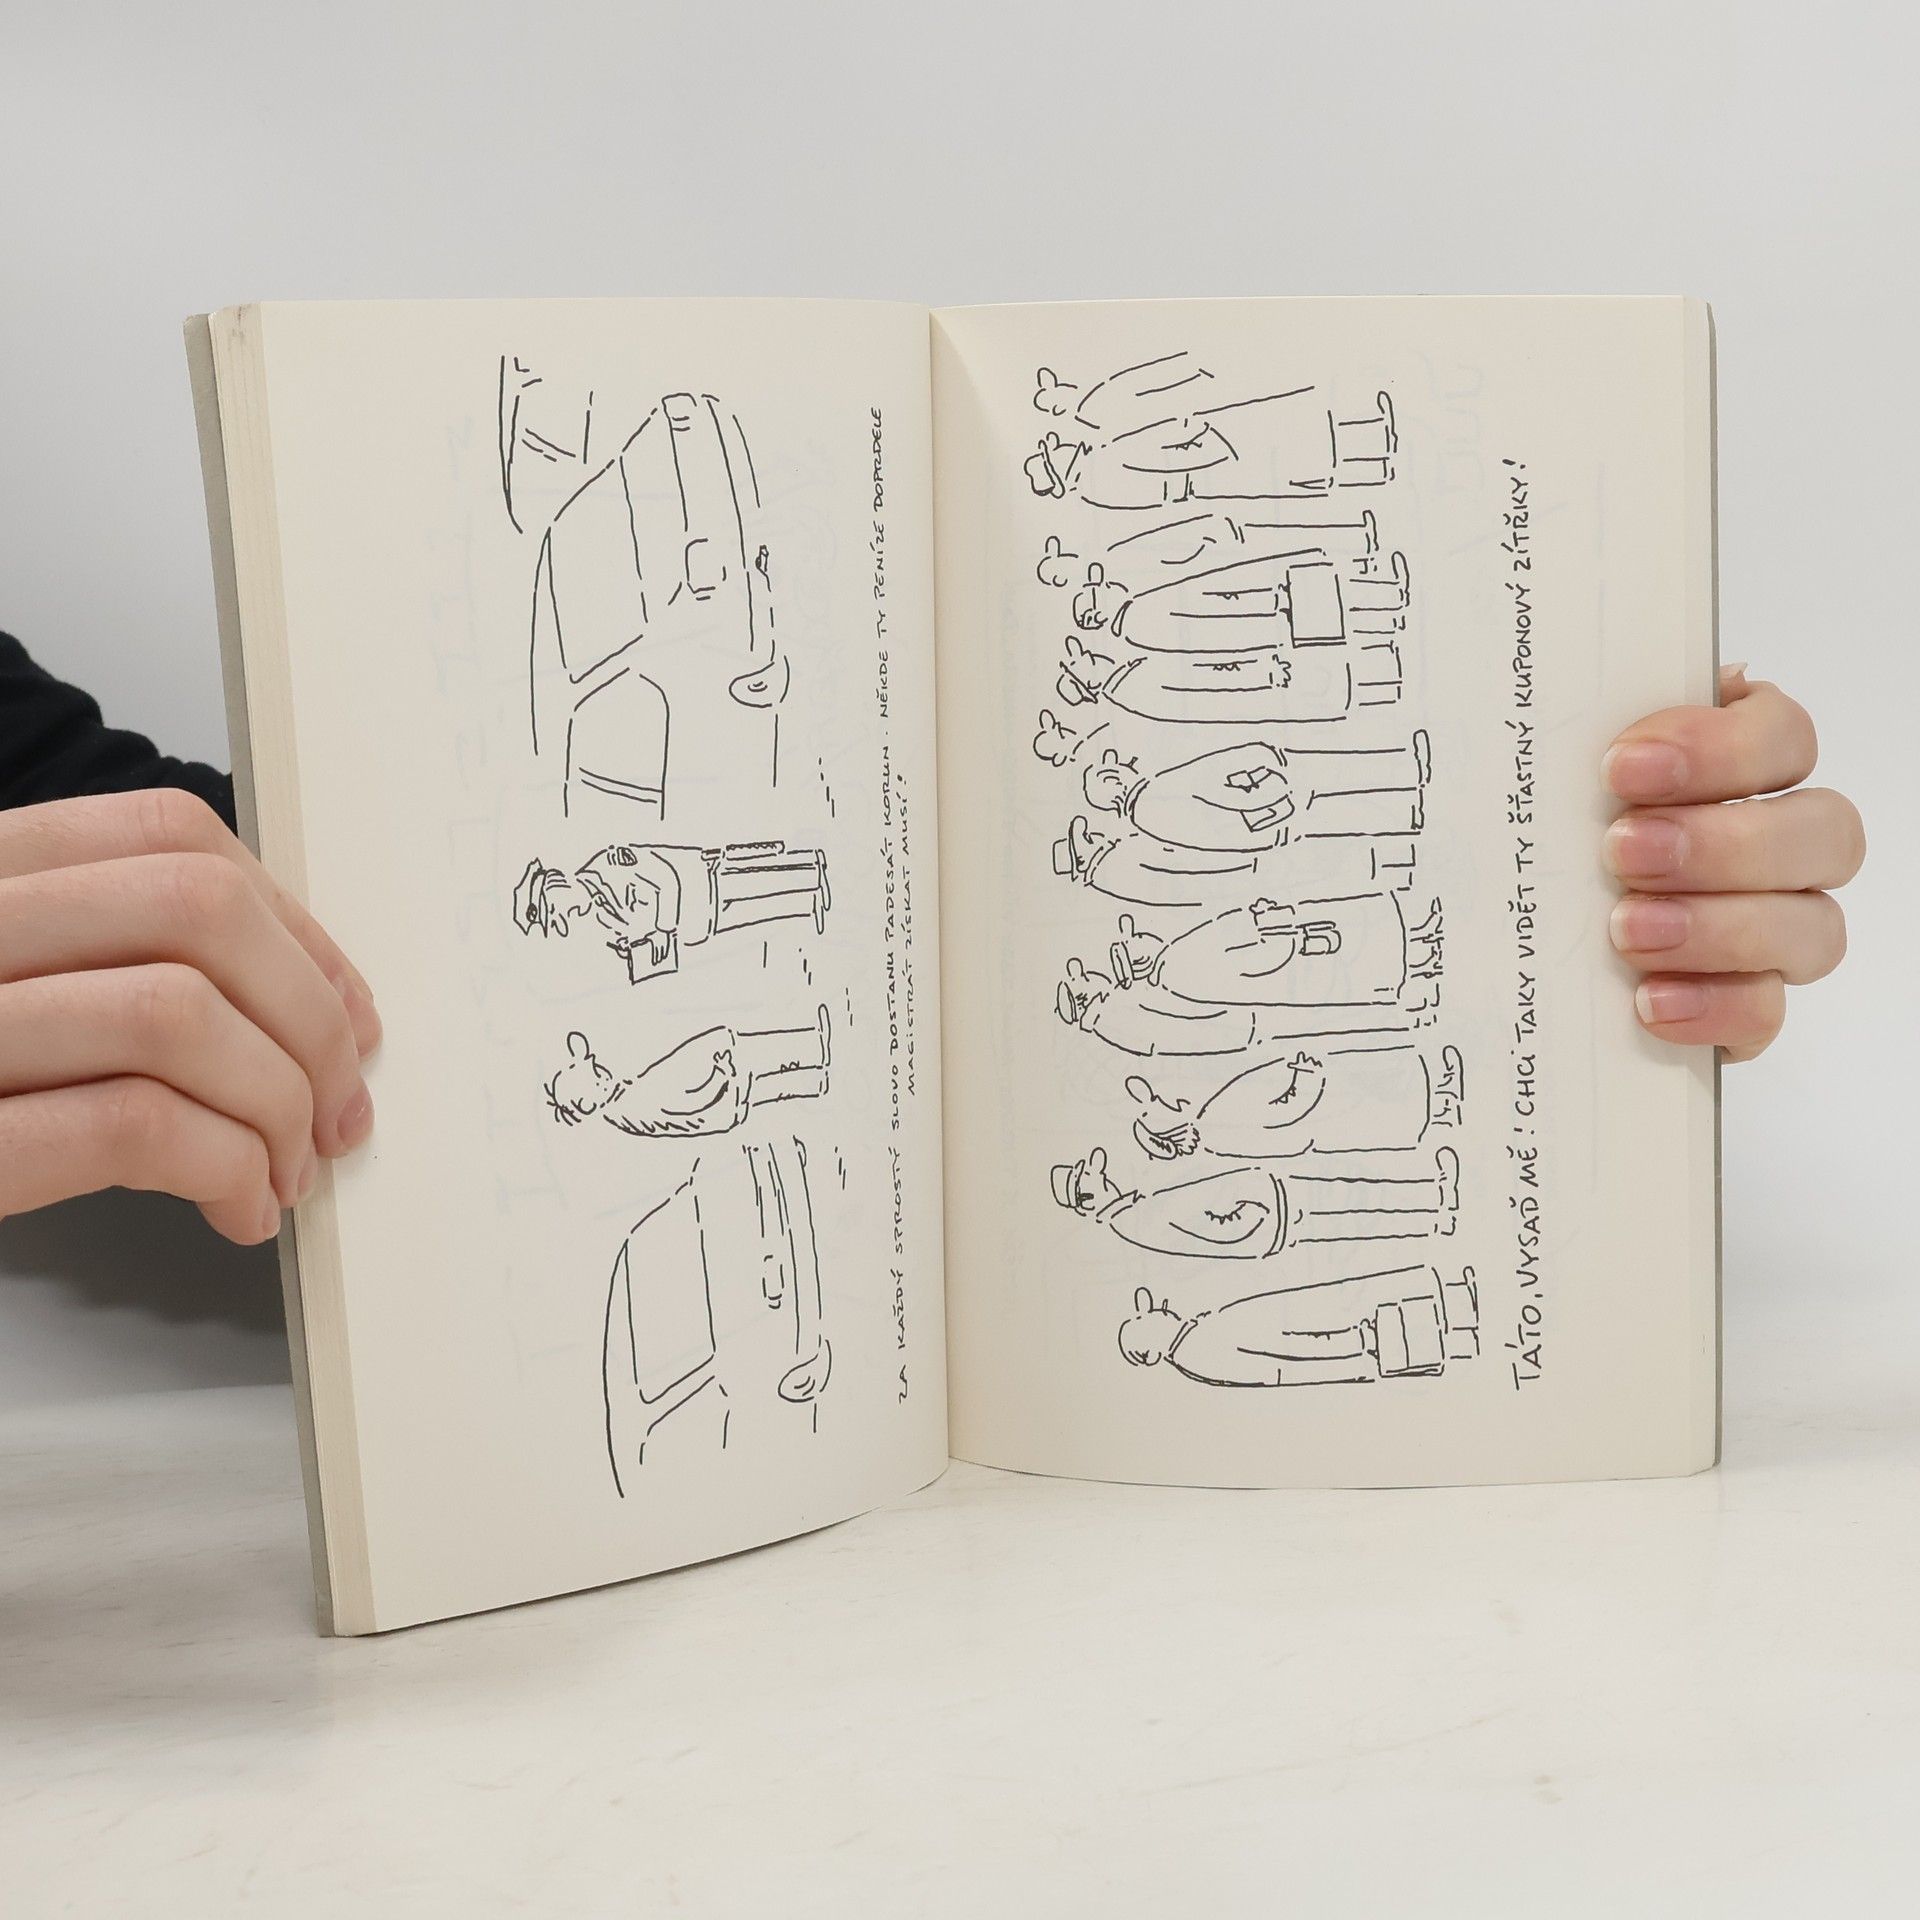 ZA KAŽDÝ SPROSTÝ SLOVO DOSTANU PADESÁT KORUN. NĚKDE TY PENÍZE DOPRDELE
MAGISTRÁT ZÍSKAT MUSÍ!
TÁTO, VYSAĎ MĚ! CHCI TAKY VIDĚT TY ŠŤASTNÝ KUPONOVÝ ZÍTŘKY!